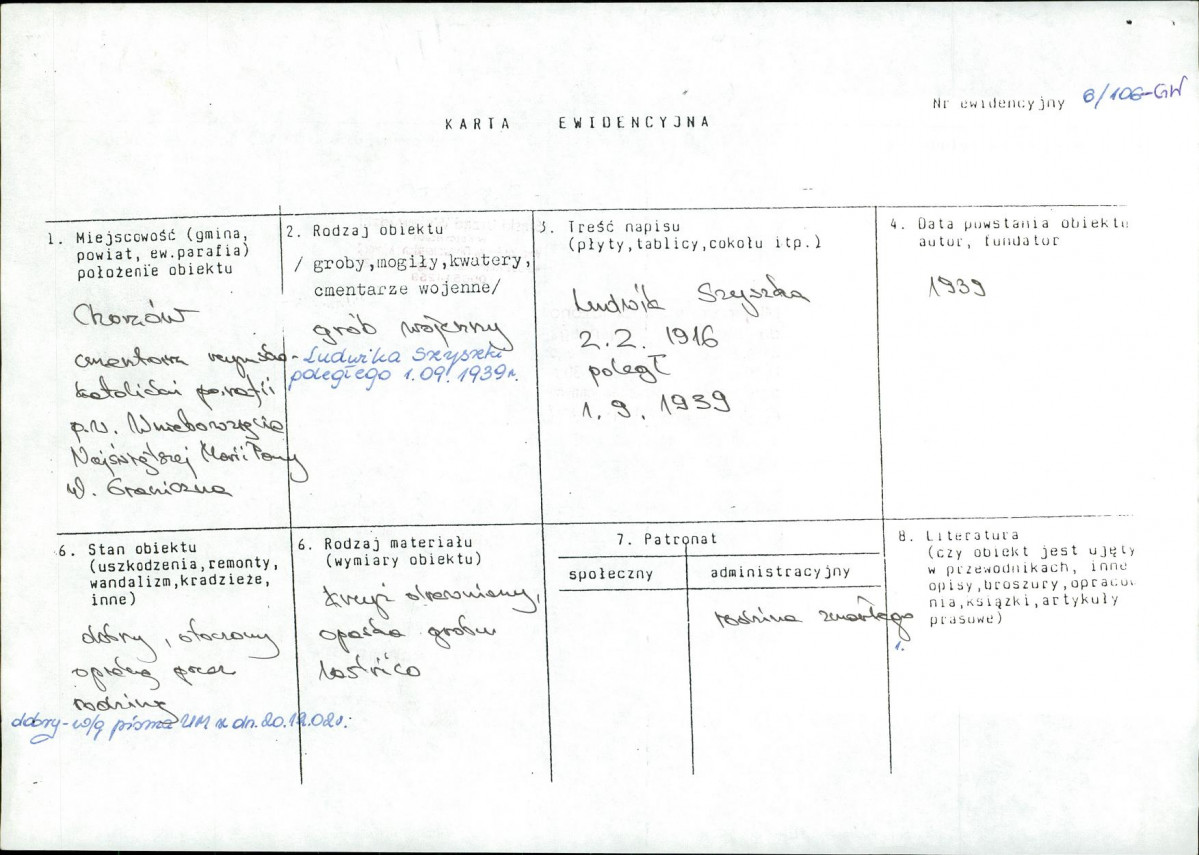 Nr ewidencyjny 6/106-GW
KARTA EWIDENCYJNA
1. Miejscowość (gmina,
powiat, ew.parafia)
położenie obiektu
Chorzów
cmentarz rzymsko-
katolicki parafii
p.w. Wniebowzięcia
Najświętszej Marii Panny
ul. Graniczna
2. Rodzaj obiektu
/ groby,mogiły,kwatery,
cmentarze wojenne/
grób wojenny
Ludwika Szyszki
poległego 1.09.1939r.
3. Treść napisu
(płyty,tablicy,cokołu itp.)
Ludwik Szyszka
2.2. 1916
poległ
1.9.1939
4. Data powstania obiektu
autor, fundator
1939
6. Stan obiektu
(uszkodzenia,remonty,
wandalizm,kradzieże,
inne)
dobry, otoczony
opieką przez
rodzinę
dobry-w/g pisma UM z dn.20.12.02r.
6. Rodzaj materiału
(wymiary obiektu)
krzyż drewniany,
opaska grobu
lastrico
7. Patronat
społeczny
administracyjny
rodzina zmarłego
1.
8. Literatura
(czy obiekt jest ujęty
w przewodnikach, inne
opisy,broszury,opracow
nia,książki,artykuły
prasowe)